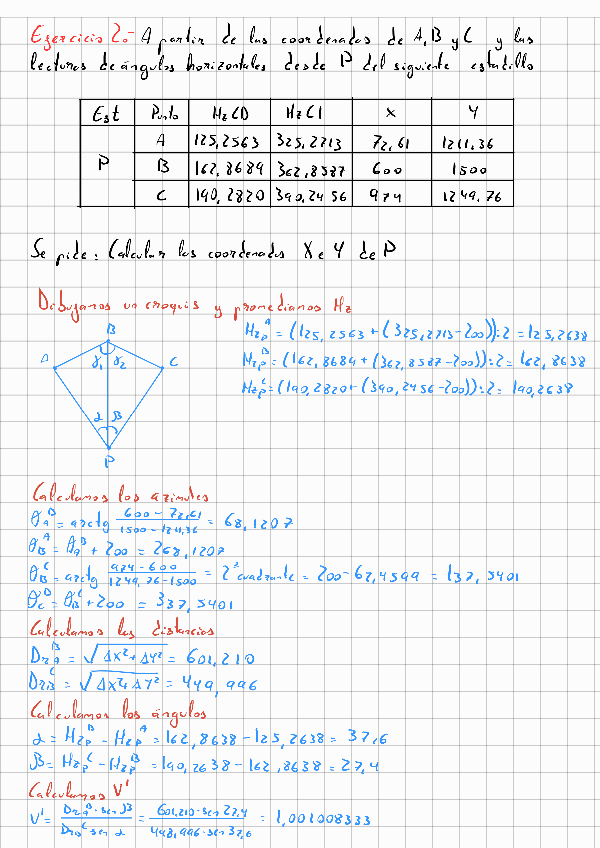 Ejercicio 2.- A partir de las coordenadas de A, B y C y las
lecturas de ángulos horizontales desde P del siguiente estadillo
Est Punto HzCD HzCI X Y
A 125,2563 325,2713 72,61 1211,36
P B 162,8689 362,8587 600 1500
C 190,2820 390,2456 974 1249,76
Se pide: Calcular las coordenadas X e Y de P
Dibujamos un croquis y promediamos Hz
Hz_P^A = (125,2563 + (325,2713-200)):2 = 125,2638
Hz_P^B = (162,8689 + (362,8587-200)):2 = 162,8638
Hz_P^C = (190,2820 + (390,2456-200)):2 = 190,2638
B
A γ1 γ2 C
α β
P
Calculamos los azimutes
θ_A^B = arctg (600-72,61)/(1500-1211,36) = 68,1207
θ_B^A = θ_A^B + 200 = 268,1207
θ_B^C = arctg (974-600)/(1249,76-1500) = 2º cuadrante = 200-62,4599 = 137,5401
θ_C^B = θ_B^C + 200 = 337,5401
Calculamos las distancias
Dr_A^B = √(ΔX²+ΔY²) = 601,210
Dr_B^C = √(ΔX²+ΔY²) = 449,996
Calculamos los ángulos
α = Hz_P^B - Hz_P^A = 162,8638 - 125,2638 = 37,6
β = Hz_P^C - Hz_P^B = 190,2638 - 162,8638 = 27,4
Calculamos V'
V' = (Dr_A^B · sen β)/(Dr_B^C sen α) = (601,210 · sen 27,4)/(449,996 · sen 37,6) = 1,001008333